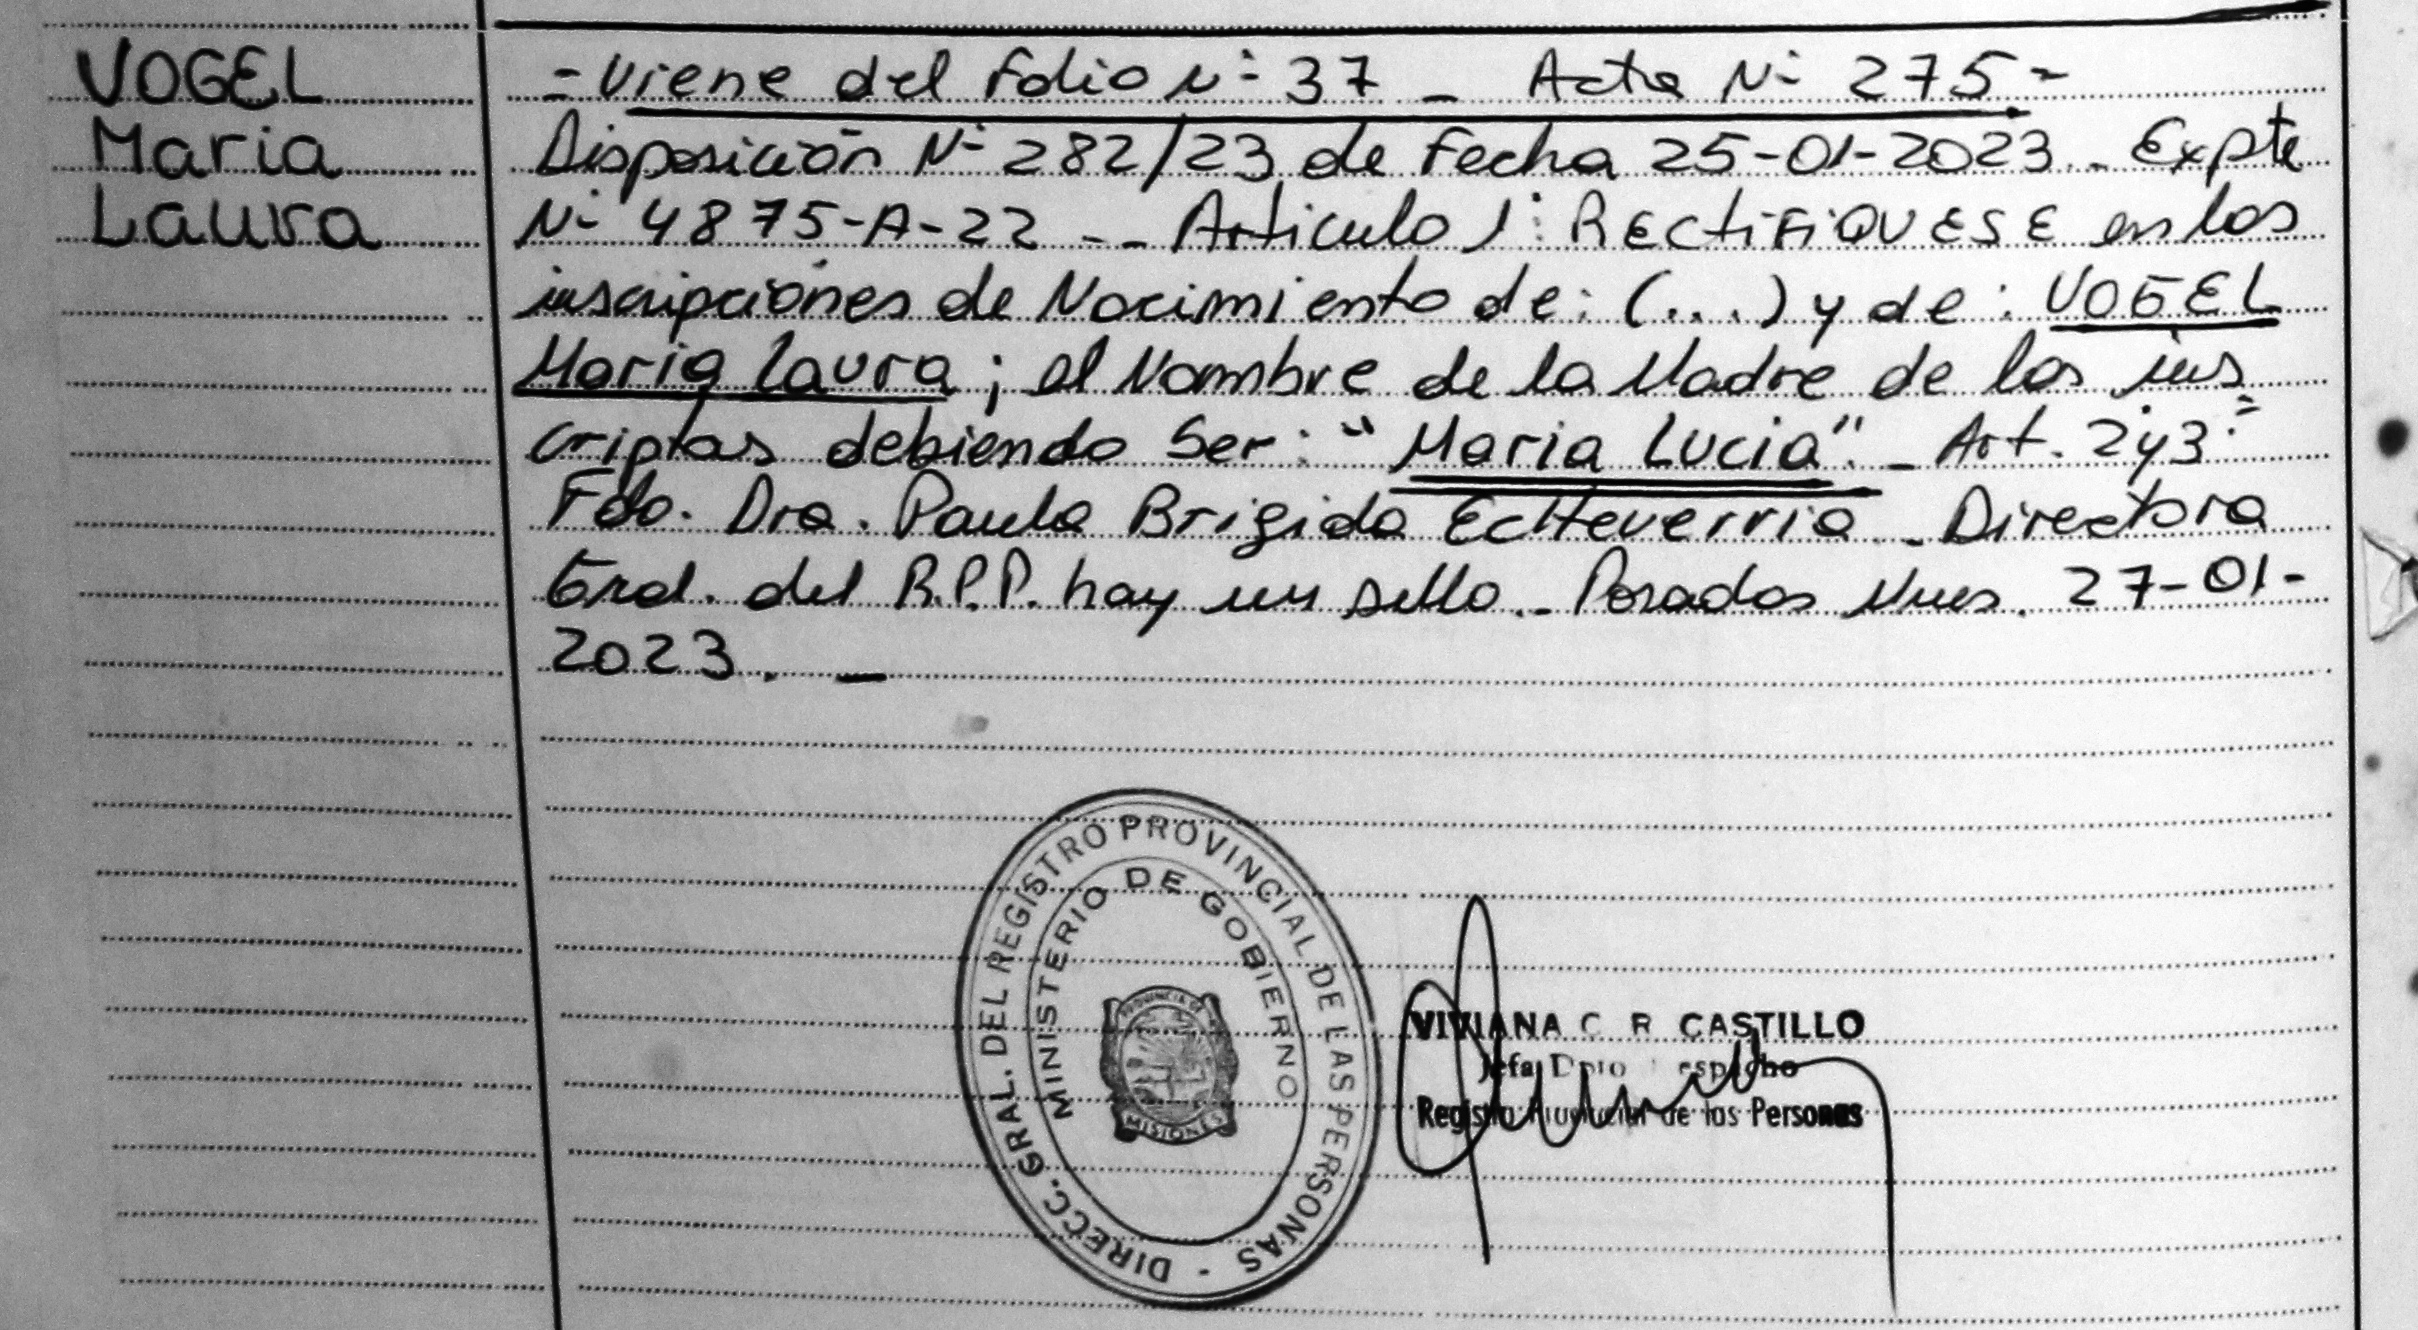 VOGEL
Maria
Laura
= Viene del Folio N° 37 _ Acta N° 275.=
Disposición N° 282/23 de Fecha 25-01-2023 _ Expte
N° 4875-A-22 _ _ Artículo 1°: RECTIFIQUESE en las
inscripciones de Nacimiento de: (...) y de: VOGEL
Maria Laura; el Nombre de la Madre de las ins
criptas debiendo Ser: "Maria Lucia". _ Art. 2y3:=
Fdo. Dra. Paula Brigida Echeverria _ Directora
Gral. del R.P.P. hay un sello._ Posadas Mnes. 27-01-
2023. _
DIRECC. GRAL. DEL REGISTRO PROVINCIAL DE LAS PERSONAS -
MINISTERIO DE GOBIERNO
PROVINCIA DE
MISIONES
VIVIANA C R CASTILLO
Jefa Dpto Despacho
Registro Provincial de las Personas